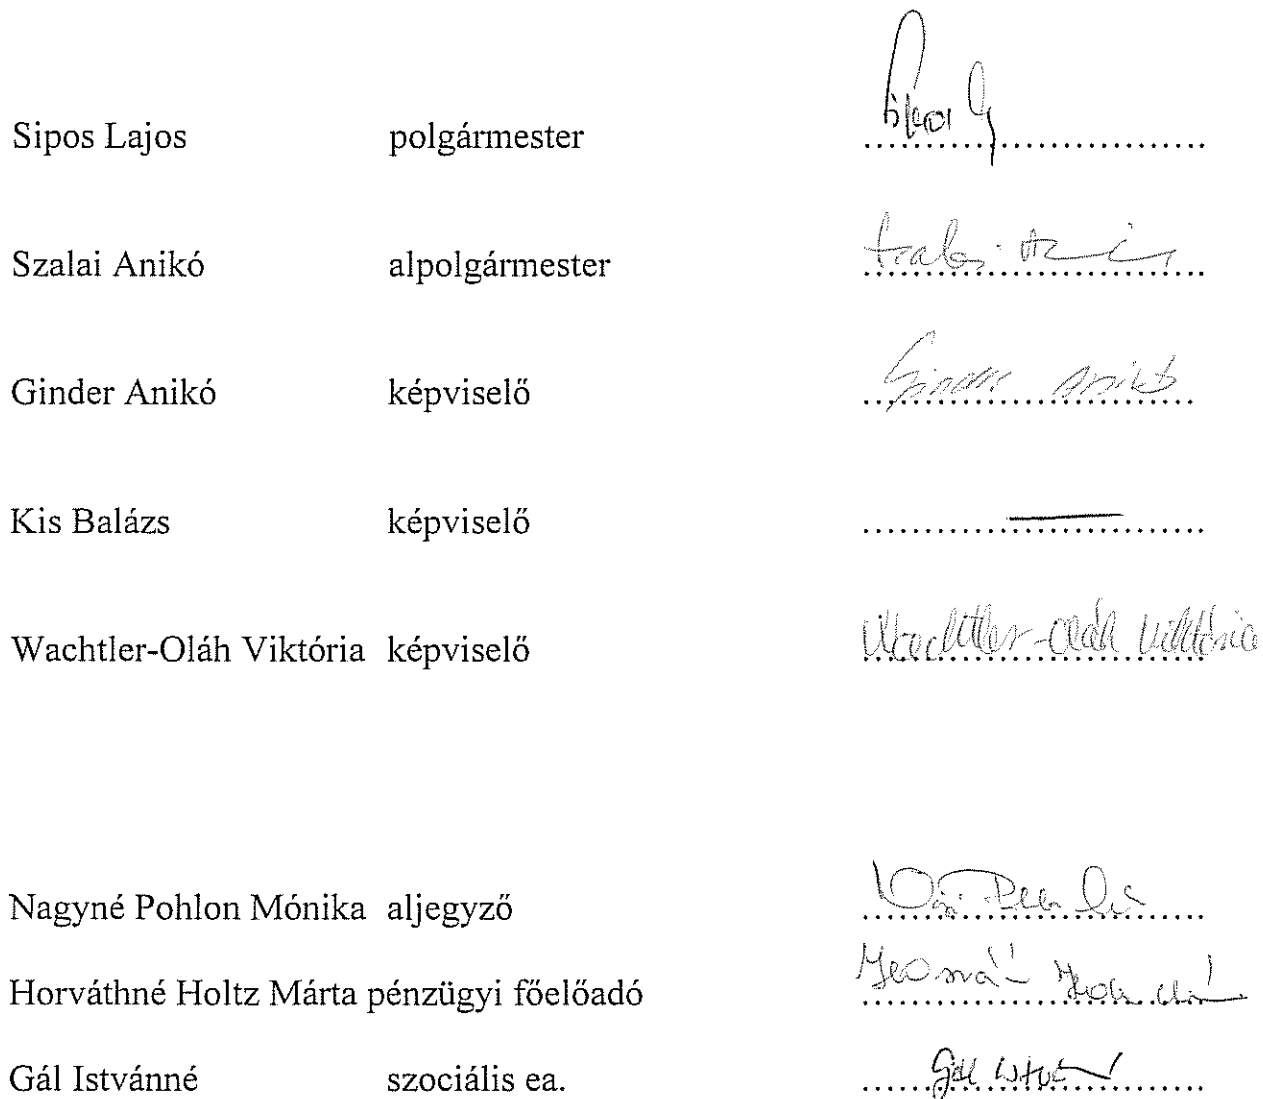 Sipos Lajos polgármester
Szalai Anikó alpolgármester
Ginder Anikó képviselő Ginder Anikó
Kis Balázs képviselő
Wachtler-Oláh Viktória képviselő Wachtler-Oláh Viktória
Nagyné Pohlon Mónika aljegyző
Horváthné Holtz Márta pénzügyi főelőadó
Gál Istvánné szociális ea.